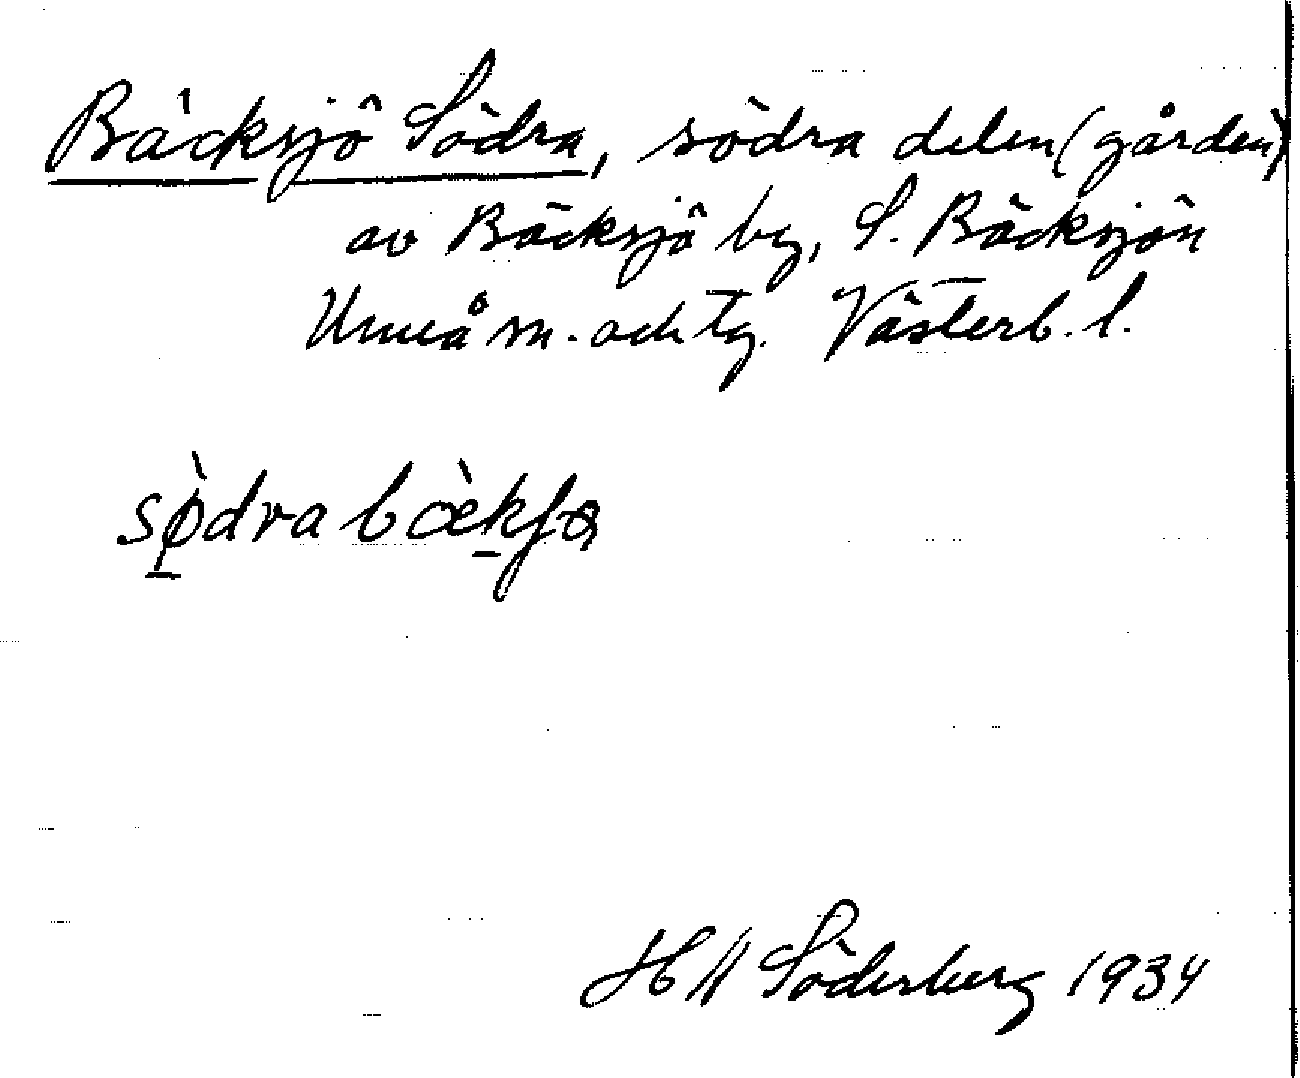 Bäcksjö Södra, södra delen (gården)
av Bäcksjö by, S. Bäcksjön
Umeå sn. och tg. Västerb. l.
sø̀dra bæ̀kʃɷ
H Söderberg 1934